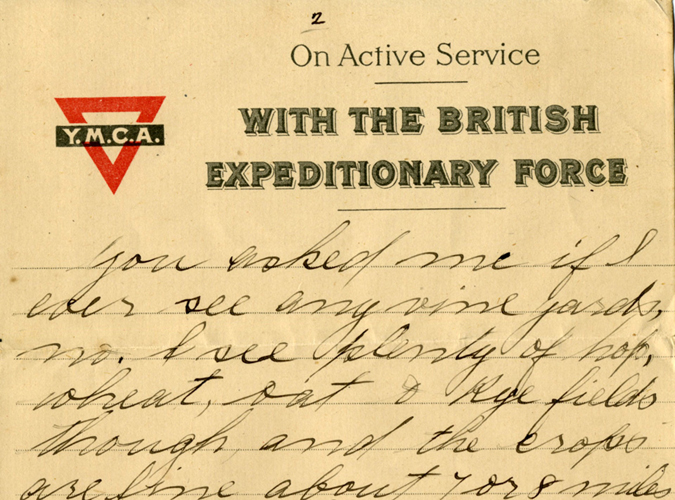 2
On Active Service
WITH THE BRITISH
EXPEDITIONARY FORCE
Y.M.C.A.
You asked me if I
ever see any vine yards,
no. I see plenty of hop,
wheat, oat & Rye fields
though, and the crops
are fine about 7 or 8 miles